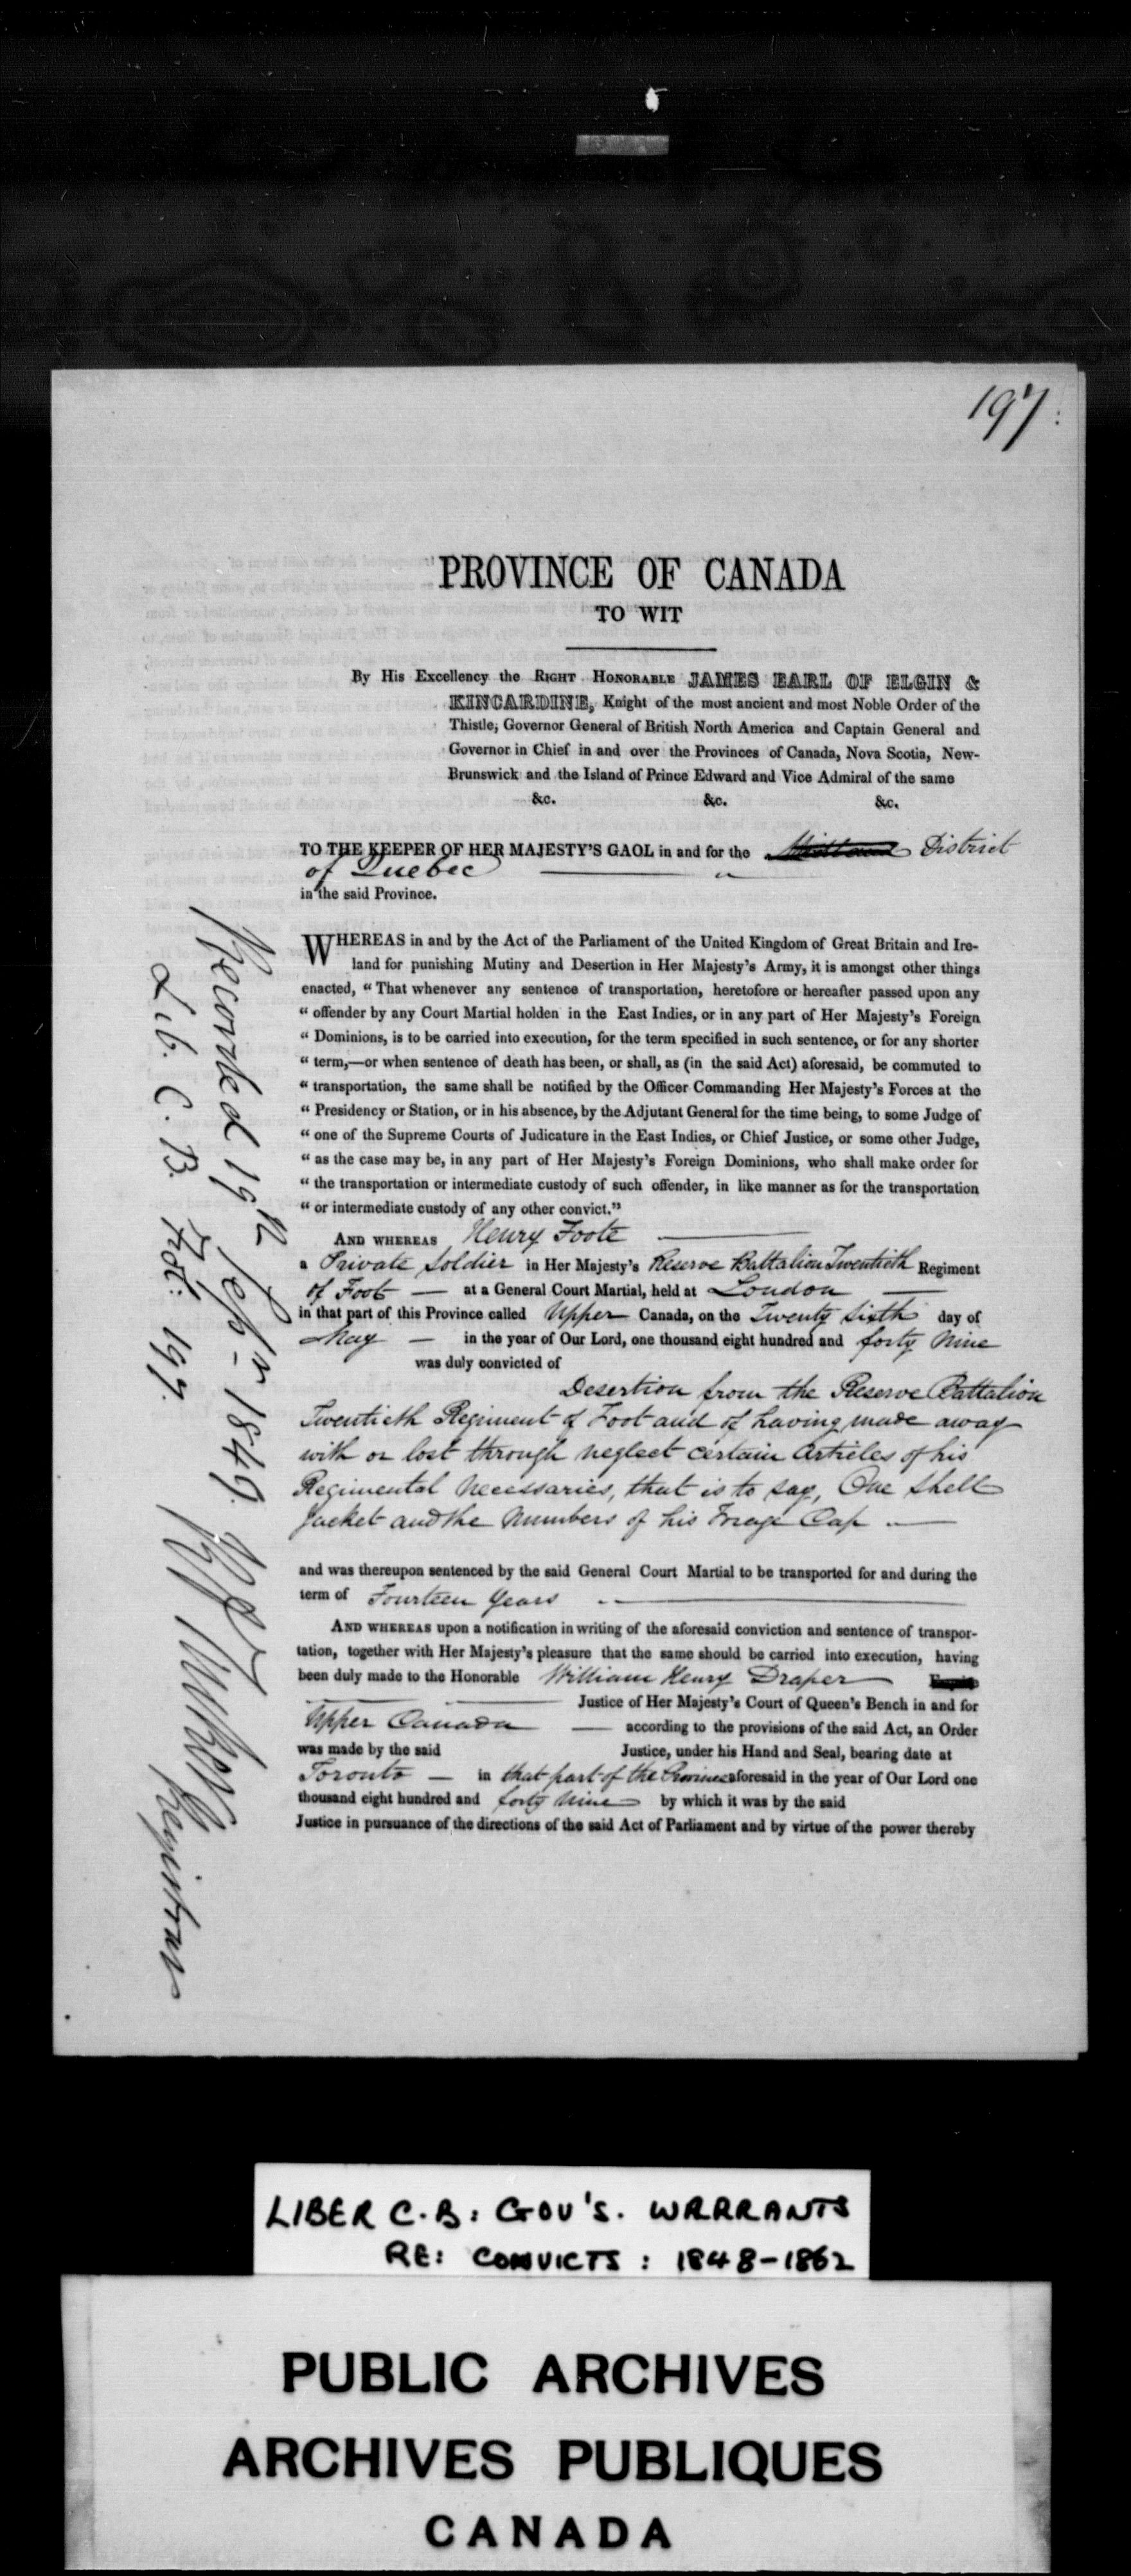 197
PROVINCE OF CANADA
TO WIT
By His Excellency the RIGHT HONORABLE JAMES EARL OF ELGIN &
KINCARDINE, Knight of the most ancient and most Noble Order of the
Thistle, Governor General of British North America and Captain General and
Governor in Chief in and over the Provinces of Canada, Nova Scotia, New-
Brunswick and the Island of Prince Edward and Vice Admiral of the same
&c. &c. &c.
TO THE KEEPER OF HER MAJESTY'S GAOL in and for the District
of Quebec
in the said Province.
WHEREAS in and by the Act of the Parliament of the United Kingdom of Great Britain and Ire-
land for punishing Mutiny and Desertion in Her Majesty's Army, it is amongst other things
enacted, "That whenever any sentence of transportation, heretofore or hereafter passed upon any
"offender by any Court Martial holden in the East Indies, or in any part of Her Majesty's Foreign
"Dominions, is to be carried into execution, for the term specified in such sentence, or for any shorter
"term,—or when sentence of death has been, or shall, as (in the said Act) aforesaid, be commuted to
"transportation, the same shall be notified by the Officer Commanding Her Majesty's Forces at the
"Presidency or Station, or in his absence, by the Adjutant General for the time being, to some Judge of
"one of the Supreme Courts of Judicature in the East Indies, or Chief Justice, or some other Judge,
"as the case may be, in any part of Her Majesty's Foreign Dominions, who shall make order for
"the transportation or intermediate custody of such offender, in like manner as for the transportation
"or intermediate custody of any other convict."
AND WHEREAS Henry Foote
a Private Soldier in Her Majesty's Reserve Battalion Twentieth Regiment
of Foot — at a General Court Martial, held at London
in that part of this Province called Upper Canada, on the Twenty Sixth day of
May — in the year of Our Lord, one thousand eight hundred and forty Nine
was duly convicted of
Desertion from the Reserve Battalion
Twentieth Regiment of Foot and of having made away
with or lost through neglect certain Articles of his
Regimental Necessaries, that is to say, One Shell
Jacket and the Numbers of his Forage Cap
and was thereupon sentenced by the said General Court Martial to be transported for and during the
term of Fourteen Years
AND WHEREAS upon a notification in writing of the aforesaid conviction and sentence of transpor-
tation, together with Her Majesty's pleasure that the same should be carried into execution, having
been duly made to the Honorable William Henry Draper
Justice of Her Majesty's Court of Queen's Bench in and for
Upper Canada — according to the provisions of the said Act, an Order
was made by the said Justice, under his Hand and Seal, bearing date at
Toronto — in that part of the Province aforesaid in the year of Our Lord one
thousand eight hundred and forty Nine by which it was by the said
Justice in pursuance of the directions of the said Act of Parliament and by virtue of the power thereby
Recorded 19th Sepr 1849
Lib. C. B. Fol: 197.
Registrar
LIBER C.B: GOV'S. WARRANTS
RE: CONVICTS: 1848-1862
PUBLIC ARCHIVES
ARCHIVES PUBLIQUES
CANADA